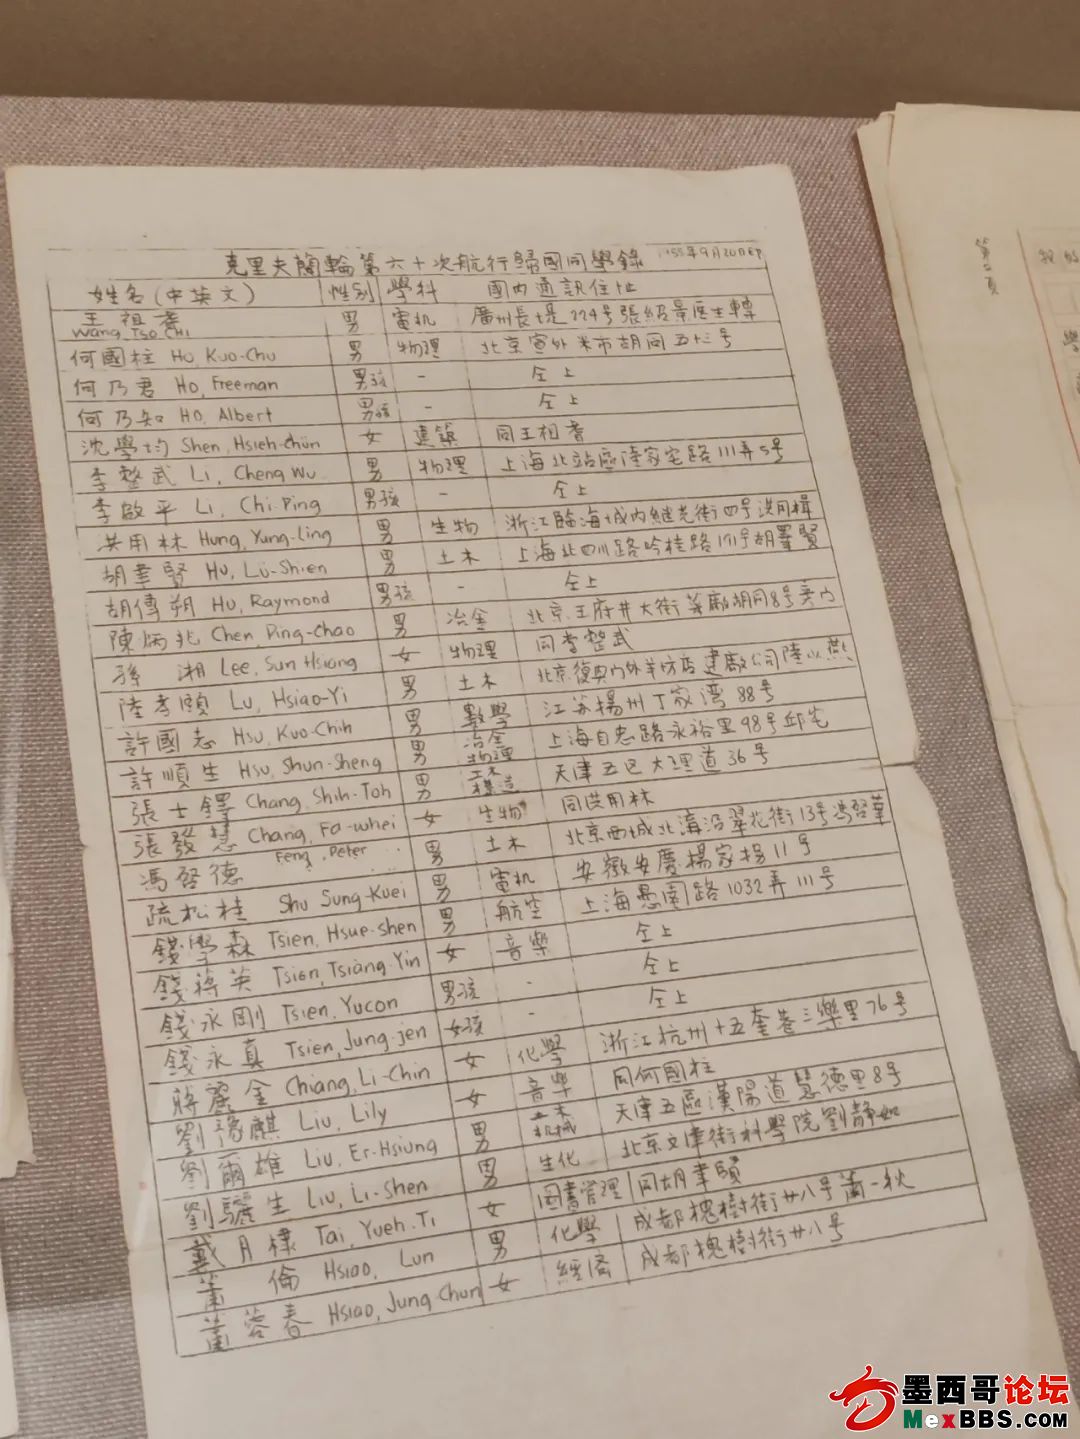 克里夫蘭輪第六十次航行歸國同學錄 1955年9月20日EP
姓名(中英文) 性別 學科 國內通訊住址
王祖耆 Wang, Tso Chi 男 電机 廣州長堤224号張紹景医生轉
何國柱 Ho, Kuo-Chu 男 物理 北京宣外米市胡同五十三号
何乃君 Ho, Freeman 男孩 - 仝上
何乃知 Ho, Albert 男孩 - 仝上
沈學均 Shen, Hsieh-chün 女 建築 同王祖耆
李整武 Li, Cheng Wu 男 物理 上海北站區陸家宅路111弄5号
李啟平 Li, Chi-Ping 男孩 - 仝上
洪用林 Hung, Yung-Ling 男 生物 浙江臨海城內繼光街四号洪用楫
胡聿賢 Hu, Lü-Shien 男 土木 上海北四川路吟桂路191号胡聿賢
胡傳朔 Hu, Raymond 男孩 - 仝上
陳炳兆 Chen, Ping-Chao 男 冶金 北京王府井大街胡同8号
孫湘 Lee, Sun Hsiang 女 物理 同李整武
陸孝頤 Lu, Hsiao-Yi 男 土木 北京復興門外羊坊店建廠公司陸以燕
許國志 Hsu, Kuo-Chih 男 數學 江苏揚州丁家湾88号
許順生 Hsu, Shun-Sheng 男 冶金物理 上海自忠路永裕里98号邱宅
張士鐸 Chang, Shih-Toh 男 土木構造 天津五区大理道36号
張發慧 Chang, Fa-whei 女 生物 同洪用林
馮啓德 Feng, Peter 男 土木 北京西城北溝沿翠花街13号馮啓華
疏松桂 Shu Sung-Kuei 男 電机 安徽安慶楊家拐11号
錢學森 Tsien, Hsue-shen 男 航空 上海愚園路1032弄111号
錢蔣英 Tsien, Tsiang-Yin 女 音樂 仝上
錢永剛 Tsien, Yucon 男孩 - 仝上
錢永真 Tsien, Jung-jen 女孩 - 仝上
蔣麗金 Chiang, Li-Chin 女 化學 浙江杭州十五奎巷三樂里76号
劉豫麒 Liu, Lily 女 音樂 同何國柱
劉爾雄 Liu, Er-Hsiung 男 土木机械 天津五區漢陽道慧德里8号
劉驪生 Liu, Li-Shen 男 生化 北京文津街科學院劉靜如
戴月棣 Tai, Yueh-Ti 女 圖書管理 同胡聿賢
蕭倫 Hsiao, Lun 男 化學 成都槐樹街廿八号蕭一秋
蕭蓉春 Hsiao, Jung Chun 女 經濟 成都槐樹街廿八号
第二頁
墨西哥论坛
MexBBS.com